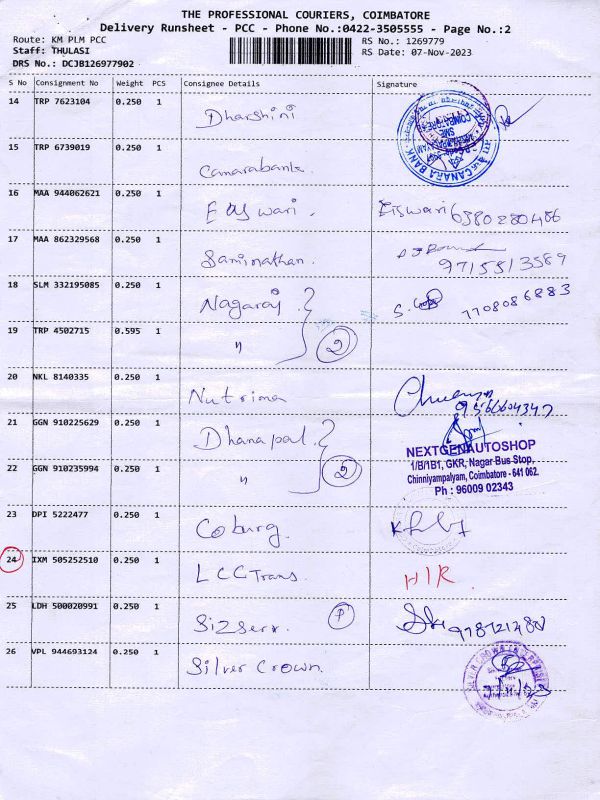 THE PROFESSIONAL COURIERS, COIMBATORE
Delivery Runsheet - PCC - Phone No.:0422-3505555 - Page No.:2
Route: KM PLM PCC RS No.: 1269779
Staff: THULASI RS Date: 07-Nov-2023
DRS No.: DCJB126977902
S No Consignment No Weight PCS Consignee Details Signature
14 TRP 7623104 0.250 1 Dharshini
15 TRP 6739019 0.250 1 Canarabank
CANARA BANK
16 MAA 944062621 0.250 1 Easwari. Eiswari 6380280486
17 MAA 862329568 0.250 1 Saminathan. 9715513589
18 SLM 332195085 0.250 1 Nagaraj 7708086883
19 TRP 4502715 0.595 1 " 2
20 NKL 8140335 0.250 1 Nutrima 9566604347
21 GGN 910225629 0.250 1 Dhanapal.
NEXTGENAUTOSHOP
1/B/1B1, GKR, Nagar Bus Stop,
22 GGN 910235994 0.250 1 " 2
Chinniyampalyam, Coimbatore - 641 062.
Ph : 96009 02343
23 DPI 5222477 0.250 1 Coburg.
24 IXM 505252510 0.250 1 LCC Trans. HIR
25 LDH 500020991 0.250 1 Sizserv. P
26 VPL 944693124 0.250 1 Silver Crown.